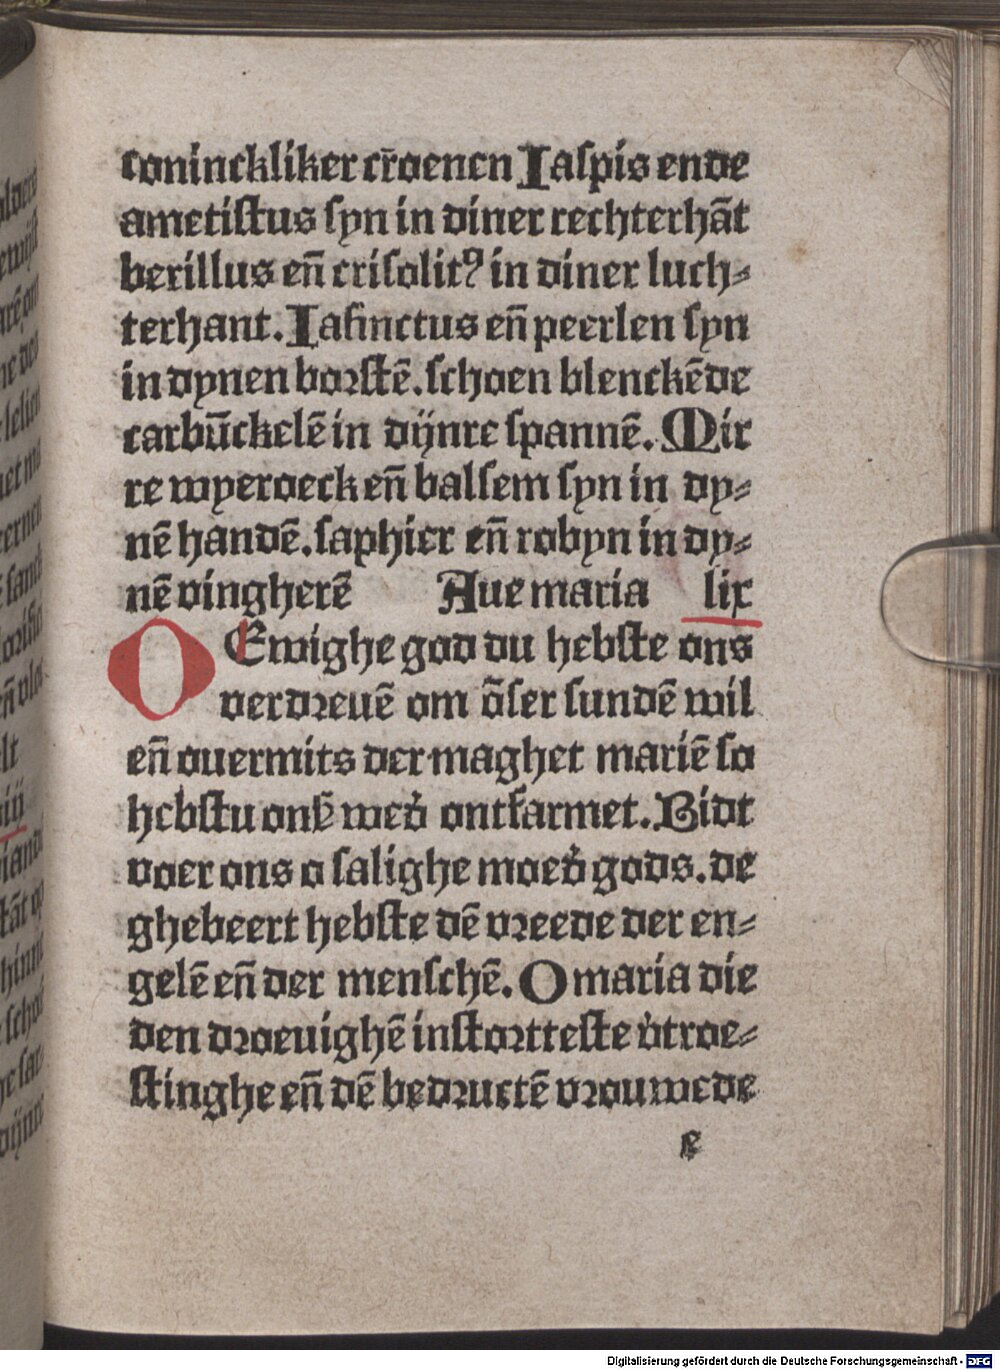 coninckliker cr̄oenen Iaspis ende
ametistus syn in diner rechterhāt
berillus eñ crisolitꝰ in diner luch⸗
terhant. Iasinctus eñ peerlen syn
in dynen borstē. schoen blenckēde
carbūckelē in dijnre spannē. Mir
re wyeroeck eñ balsem syn in dy⸗
nē handē. saphier eñ robyn in dy⸗
nē vingherē Aue maria lix
O Ewighe god du hebste ons
verdreuē om ōser sundē wil
eñ ouermits der maghet mariē so
hebstu ons wed' ontfarmet. Bidt
voer ons o salighe moed' gods. de
ghebeert hebste dē vreede der en⸗
gelē eñ der menschē. O maria die
den droeuighē instortteste v'troe⸗
stinghe eñ dē bedructē vrouwede
e
Digitalisierung gefördert durch die Deutsche Forschungsgemeinschaft - DFG